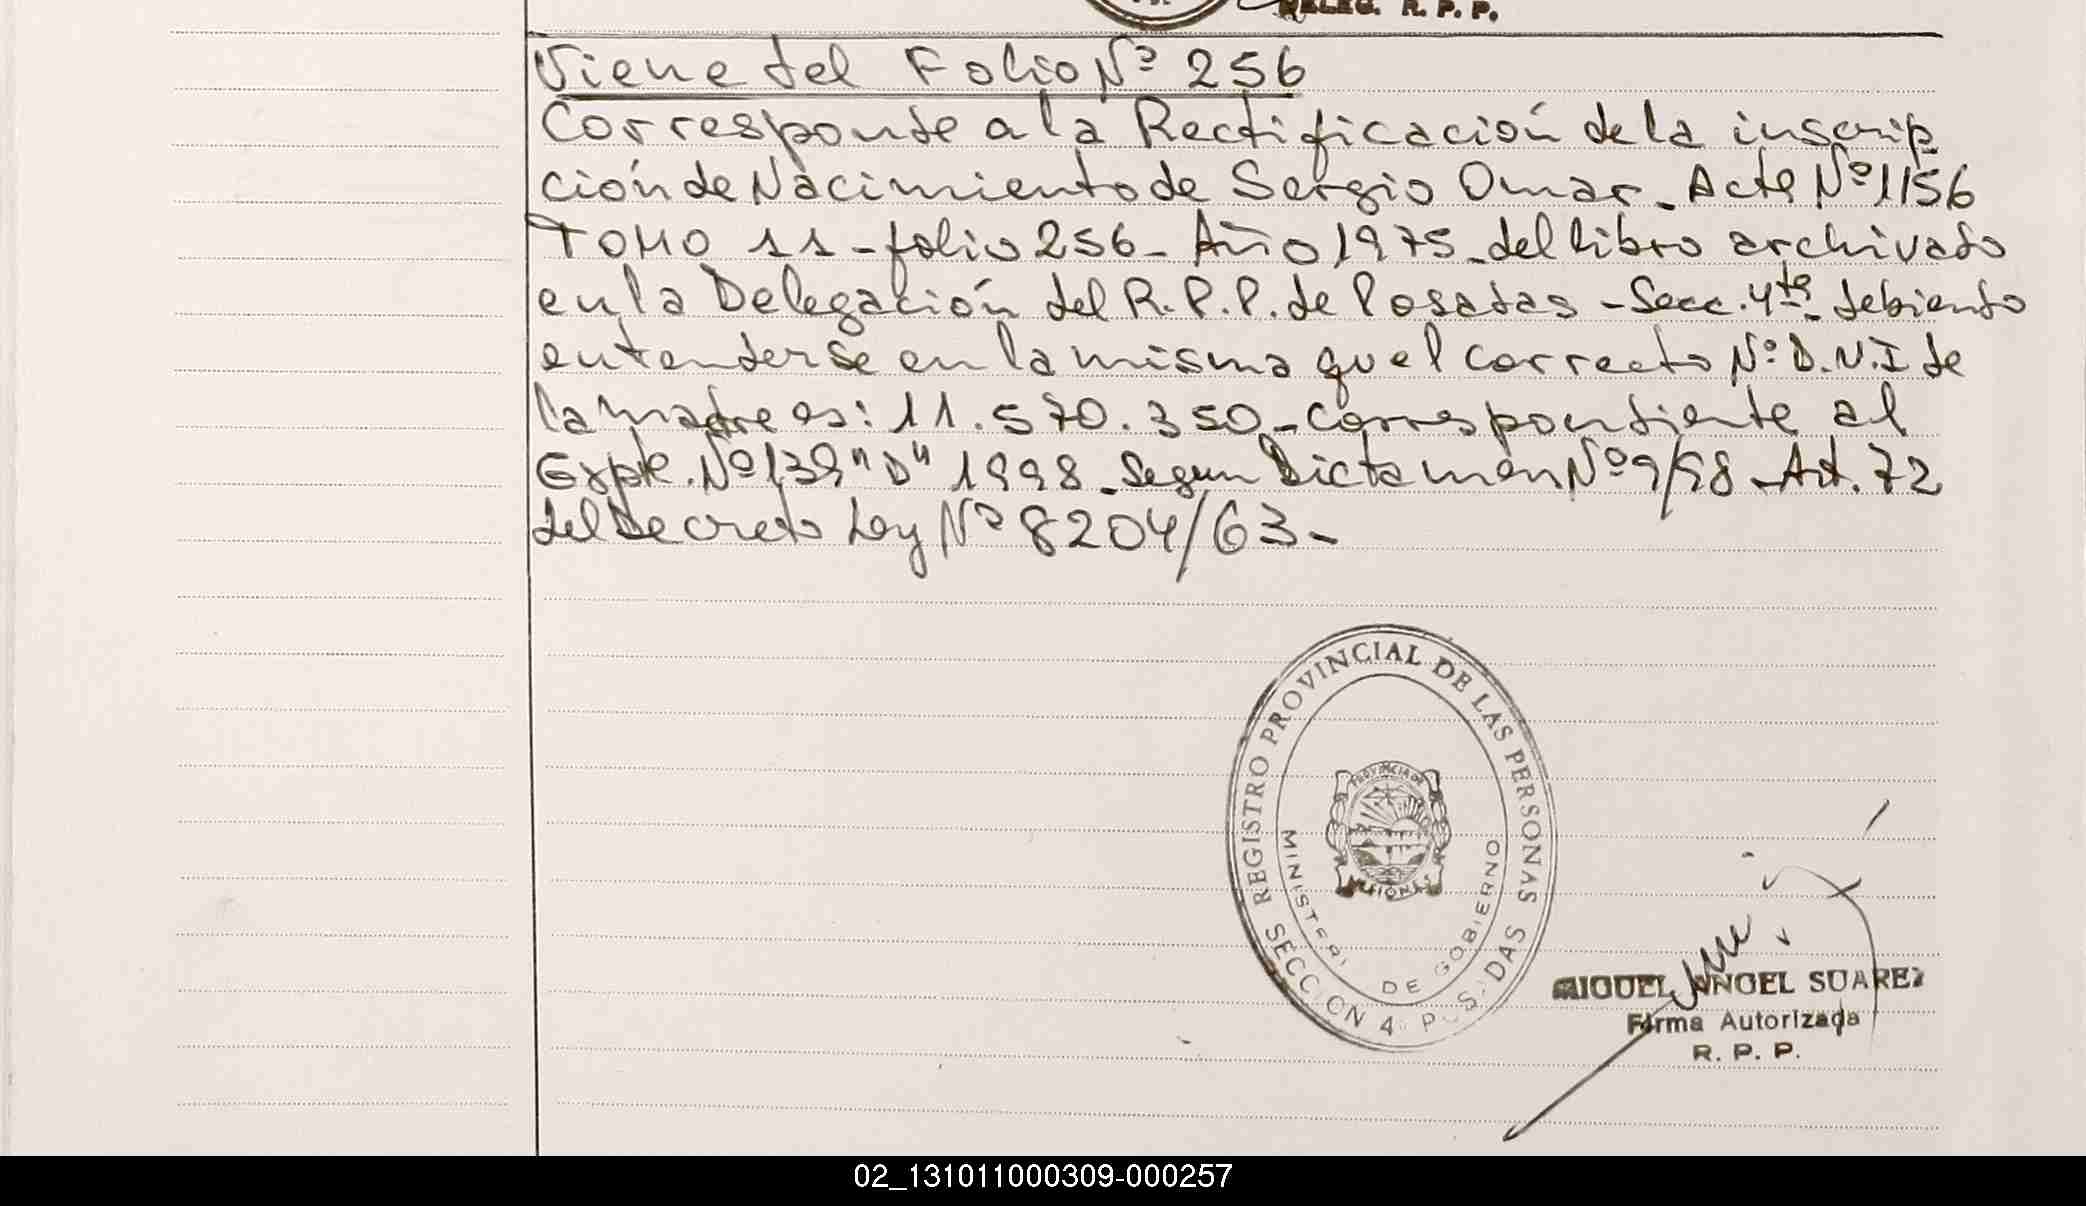 DELEG. R. P. P.
Viene del Folio Nº 256
Corresponde a la Rectificación de la inscrip
ción de Nacimiento de Sergio Omar - Acta Nº 1156
TOMO 11 - folio 256 - Año 1975 - del libro archivado
en la Delegación del R.P.P. de Posadas - Secc. 4ta - debiendo
entenderse en la misma qu el correcto Nº D.N.I de
la madre es: 11.570.350 - correspondiente al
Expte. Nº 139 "D" 1998 - Segun Dictamen Nº 9/98 - Art. 72
del Decreto Ley Nº 8204/63 -
REGISTRO PROVINCIAL DE LAS PERSONAS
PROVINCIA DE
MISIONES
MINISTERI DE GOBIERNO
SECCION 4 POSADAS
MIGUEL ANGEL SUAREZ
Firma Autorizada
R. P. P.
02_131011000309-000257